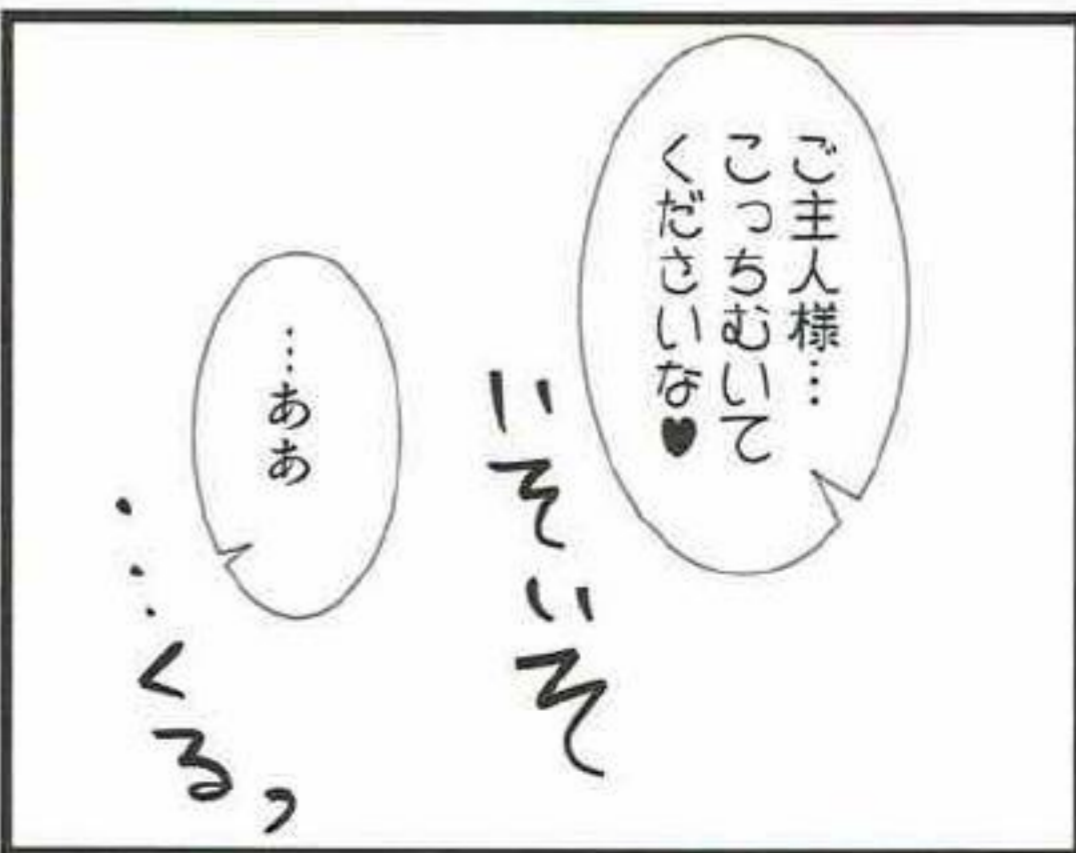 ご主人様…
こっちむいて
くださいな♥
いそいそ
…ああ
…くるっ